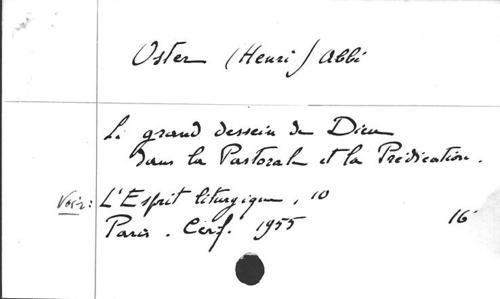 Oster (Henri) Abbé
Le grand dessein de Dieu
dans la Pastorale et la Prédication.
Voir: L'Esprit liturgique, 10
Paris. Cerf. 1955 16°